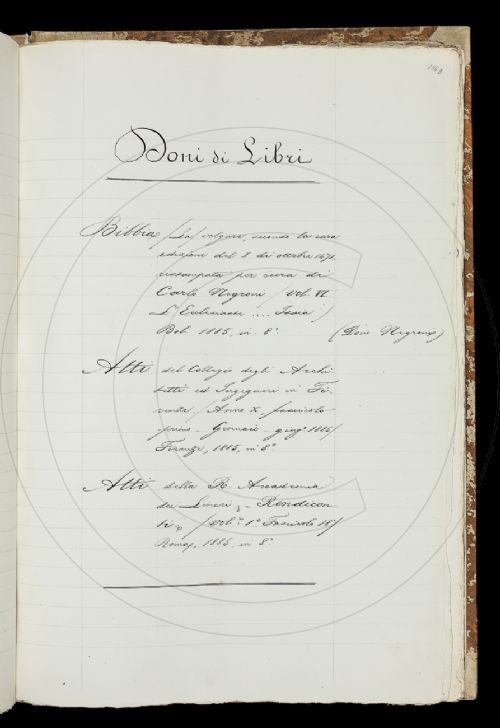 Doni di Libri
Bibbia (La) volgare, secondo la rara
edizione del I di ottobre 1471.
ristampata per cura di
Carlo Negroni / Vol. VI.
L'Ecclesiaste .... Isaia /
Bol. 1885, in 8°. (Dono Negroni)
Atti del Collegio degli Archi-
tetti ed Ingegneri in Fi-
renze / Anno X. fascicolo
primo - Gennaio - giug.° 1885 /
Firenze, 1885, in 8°
Atti della R. Accademia
dei Lincei, - Rendicon-
ti, / Vol.° 1° Fascicolo 19 /
Roma, 1885, in 8°